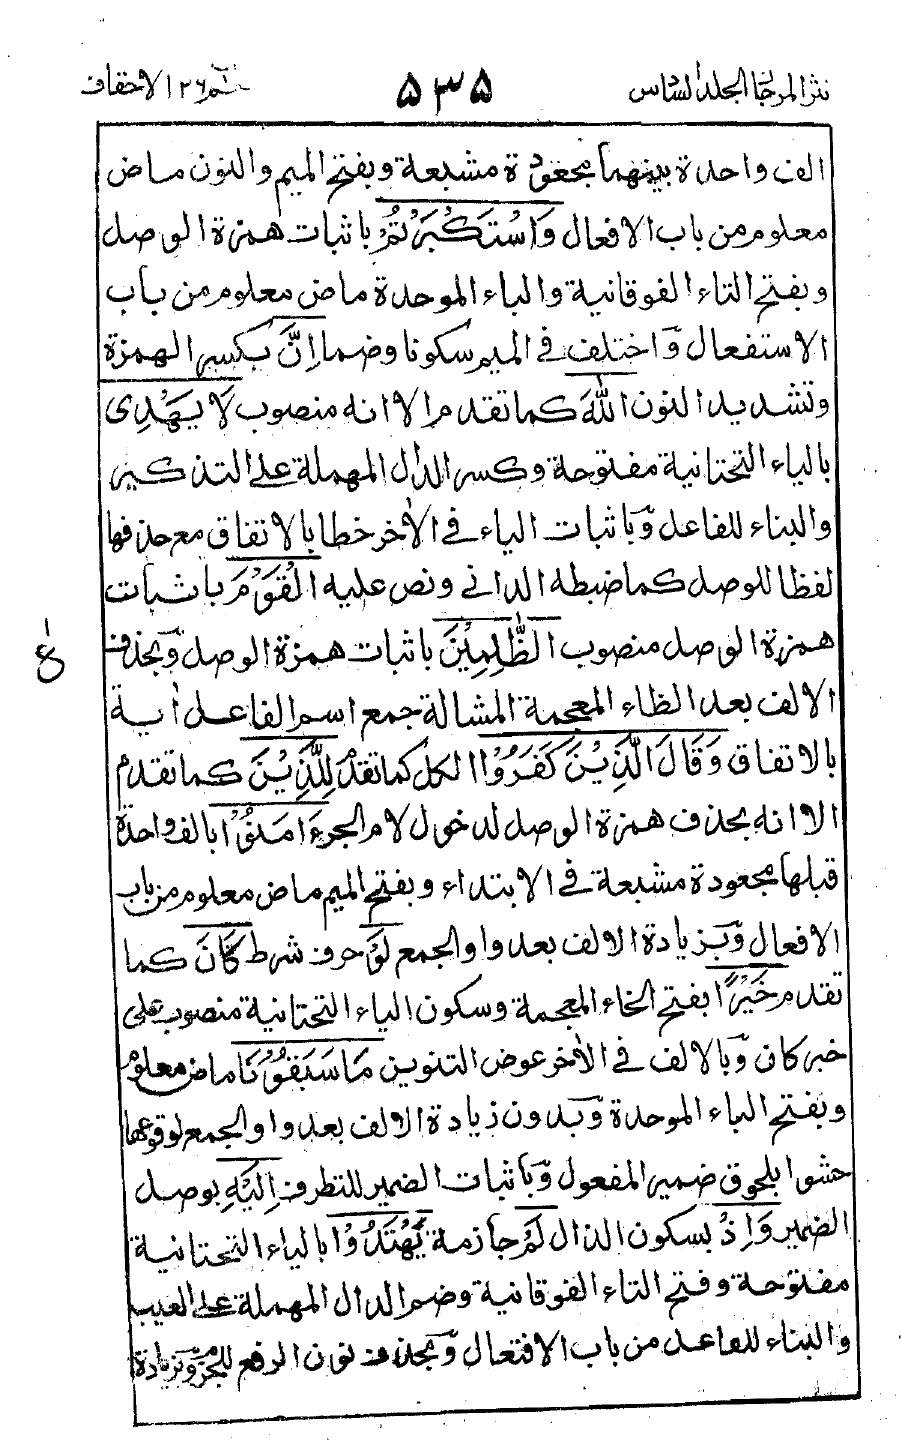 نثر المرجان المجلد السادس
۵۳۵
حم ٢٦ الاحقاف
الف واحدة بينهما مجعودة مشبعة وبفتح الميم والنون ماض
معلوم من باب الافعال وَاسْتَكْبَرْتُمْ باثبات همزة الوصل
وبفتح التاء الفوقانية والباء الموحدة ماض معلوم من باب
الاستفعال وٓاختلف في الميم سكونا وضما اِنَّ بكسر الهمزة
وتشديد النون اللّٰهَ كما تقدم الا انه منصوب لَا يَهْدِى
بالياء التحتانية مفتوحة وكسر الدال المهملة على التذكير
والبناء للفاعل وٓباثبات الياء في الاٰخر خطا بالاتفاق مع حذفها
لفظا للوصل كما ضبطه الداني ونص عليه الْقَوْمَ باثبات
همزة الوصل منصوب الظّٰلِمِيْنَ باثبات همزة الوصل وٓبحذف
الالف بعد الظاء المعجمة المشالة جمع اسم الفاعل اٰية
بالاتفاق وَقَالَ الَّذِيْنَ كَفَرُوْا الكل كما تقدم لِلَّذِيْنَ كما تقدم
الا انه بحذف همزة الوصل لدخول لام الجر ءَامَنُوْا بالف واحدة
قبلها مجعودة مشبعة في الابتداء وبفتح الميم ماض معلوم من باب
الافعال وٓبزيادة الالف بعد واو الجمع لَوْ حرف شرط كَانَ كما
تقدم خَيْرًا بفتح الخاء المعجمة وسكون الياء التحتانية منصوب على
خبر كان وٓبالالف في الاٰخر عوض التنوين مَا سَبَقُوْنَا ماض معلوم
وبفتح الباء الموحدة وٓبدون زيادة الالف بعد واو الجمع لوقوعها
حشوا بلحوق ضمير المفعول وٓباثبات الضمير للتطرف اِلَيْهِ بوصل
الضمير وَاِذْ بسكون الذال لَمْ جازمة يَهْتَدُوْا بالياء التحتانية
مفتوحة وفتح التاء الفوقانية وضم الدال المهملة على الغيب
والبناء للفاعل من باب الافتعال وٓبحذف نون الرفع للجزم وٓبزيادة